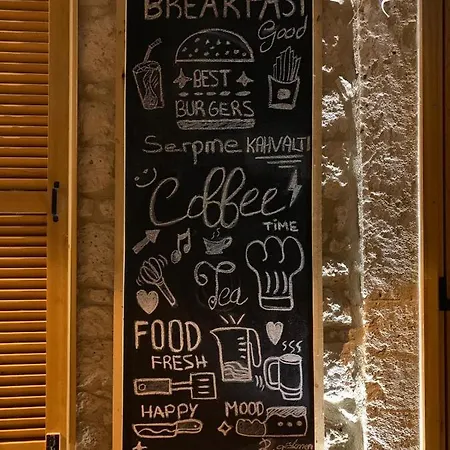 BREAKFAST
Good
BEST
BURGERS
Serpme KAHVALTI
Coffee
TIME
Tea
FOOD
FRESH
HAPPY MOOD